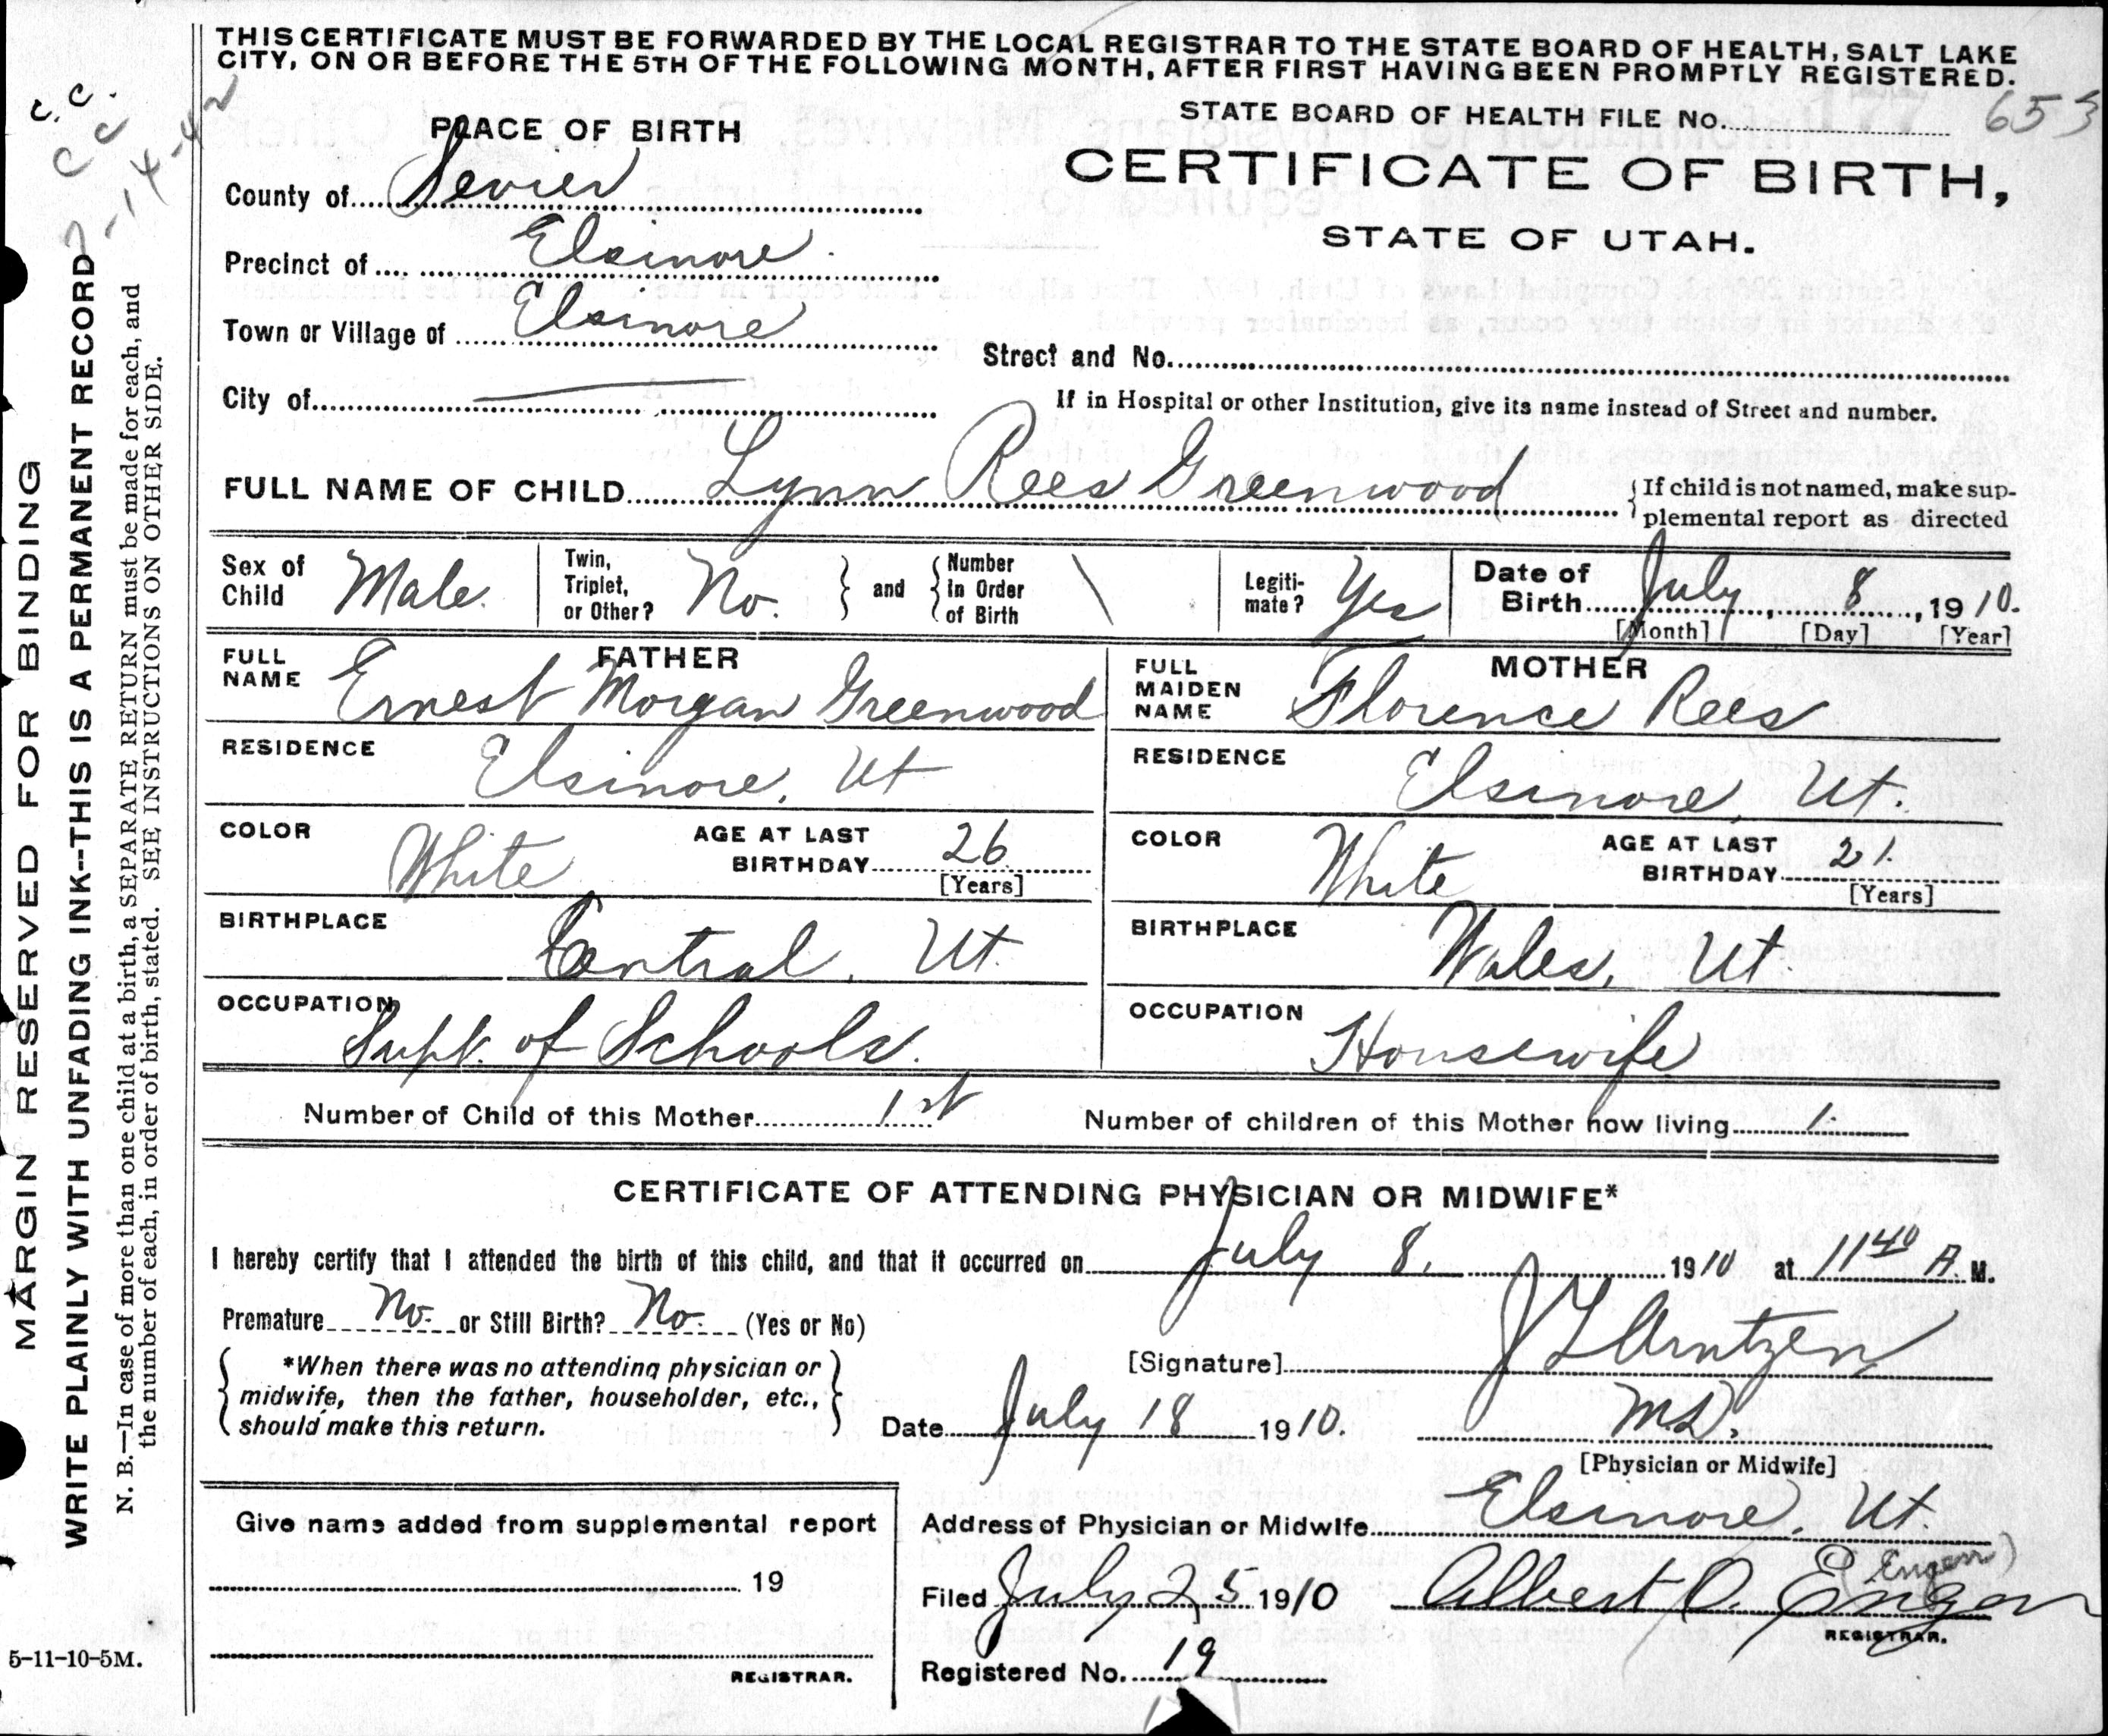 THIS CERTIFICATE MUST BE FORWARDED BY THE LOCAL REGISTRAR TO THE STATE BOARD OF HEALTH, SALT LAKE
CITY, ON OR BEFORE THE 5TH OF THE FOLLOWING MONTH, AFTER FIRST HAVING BEEN PROMPTLY REGISTERED.
c.c.
cc
-14-42
STATE BOARD OF HEALTH FILE No. 177 653
PLACE OF BIRTH
CERTIFICATE OF BIRTH,
STATE OF UTAH.
County of Sevier
Precinct of Elsinore
Town or Village of Elsinore
Street and No.
City of
If in Hospital or other Institution, give its name instead of Street and number.
FULL NAME OF CHILD Lynn Rees Greenwood
If child is not named, make sup-
plemental report as directed
Sex of Child Male.
Twin, Triplet, or Other? No. and Number In Order of Birth
Legiti-mate? Yes
Date of Birth July, 8, 1910.
[Month] [Day] [Year]
FATHER
FULL NAME Ernest Morgan Greenwood
RESIDENCE Elsinore, Ut
COLOR White AGE AT LAST BIRTHDAY 26 [Years]
BIRTHPLACE Central, Ut.
OCCUPATION Supt. of Schools.
MOTHER
FULL MAIDEN NAME Florence Rees
RESIDENCE Elsinore, Ut.
COLOR White AGE AT LAST BIRTHDAY 21. [Years]
BIRTHPLACE Wales, Ut.
OCCUPATION Housewife
Number of Child of this Mother 1st Number of children of this Mother now living 1.
CERTIFICATE OF ATTENDING PHYSICIAN OR MIDWIFE*
I hereby certify that I attended the birth of this child, and that it occurred on July 8, 1910 at 11 40 A. M.
Premature No. or Still Birth? No. (Yes or No)
*When there was no attending physician or
midwife, then the father, householder, etc.,
should make this return.
[Signature] J L Arntzen
Date July 18 1910. M.D.
[Physician or Midwife]
Give name added from supplemental report
19
REGISTRAR.
Address of Physician or Midwife Elsinore, Ut.
(Engen)
Filed July 25 1910 Albert O. Engen
REGISTRAR.
Registered No. 19
MARGIN RESERVED FOR BINDING
WRITE PLAINLY WITH UNFADING INK--THIS IS A PERMANENT RECORD
N. B.—In case of more than one child at a birth, a SEPARATE RETURN must be made for each, and
the number of each, in order of birth, stated. SEE INSTRUCTIONS ON OTHER SIDE.
5-11-10-5M.